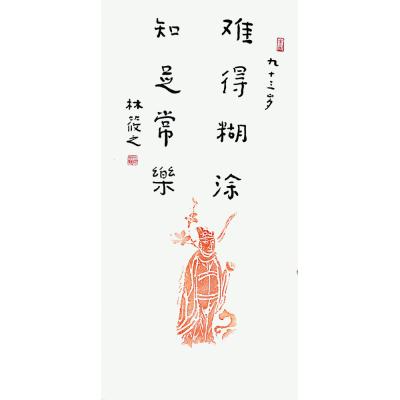 难得糊涂
知足常樂
九十三岁
林筱之